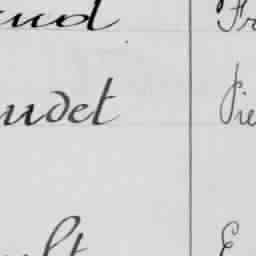 aud Fr
udet Pie
ult E